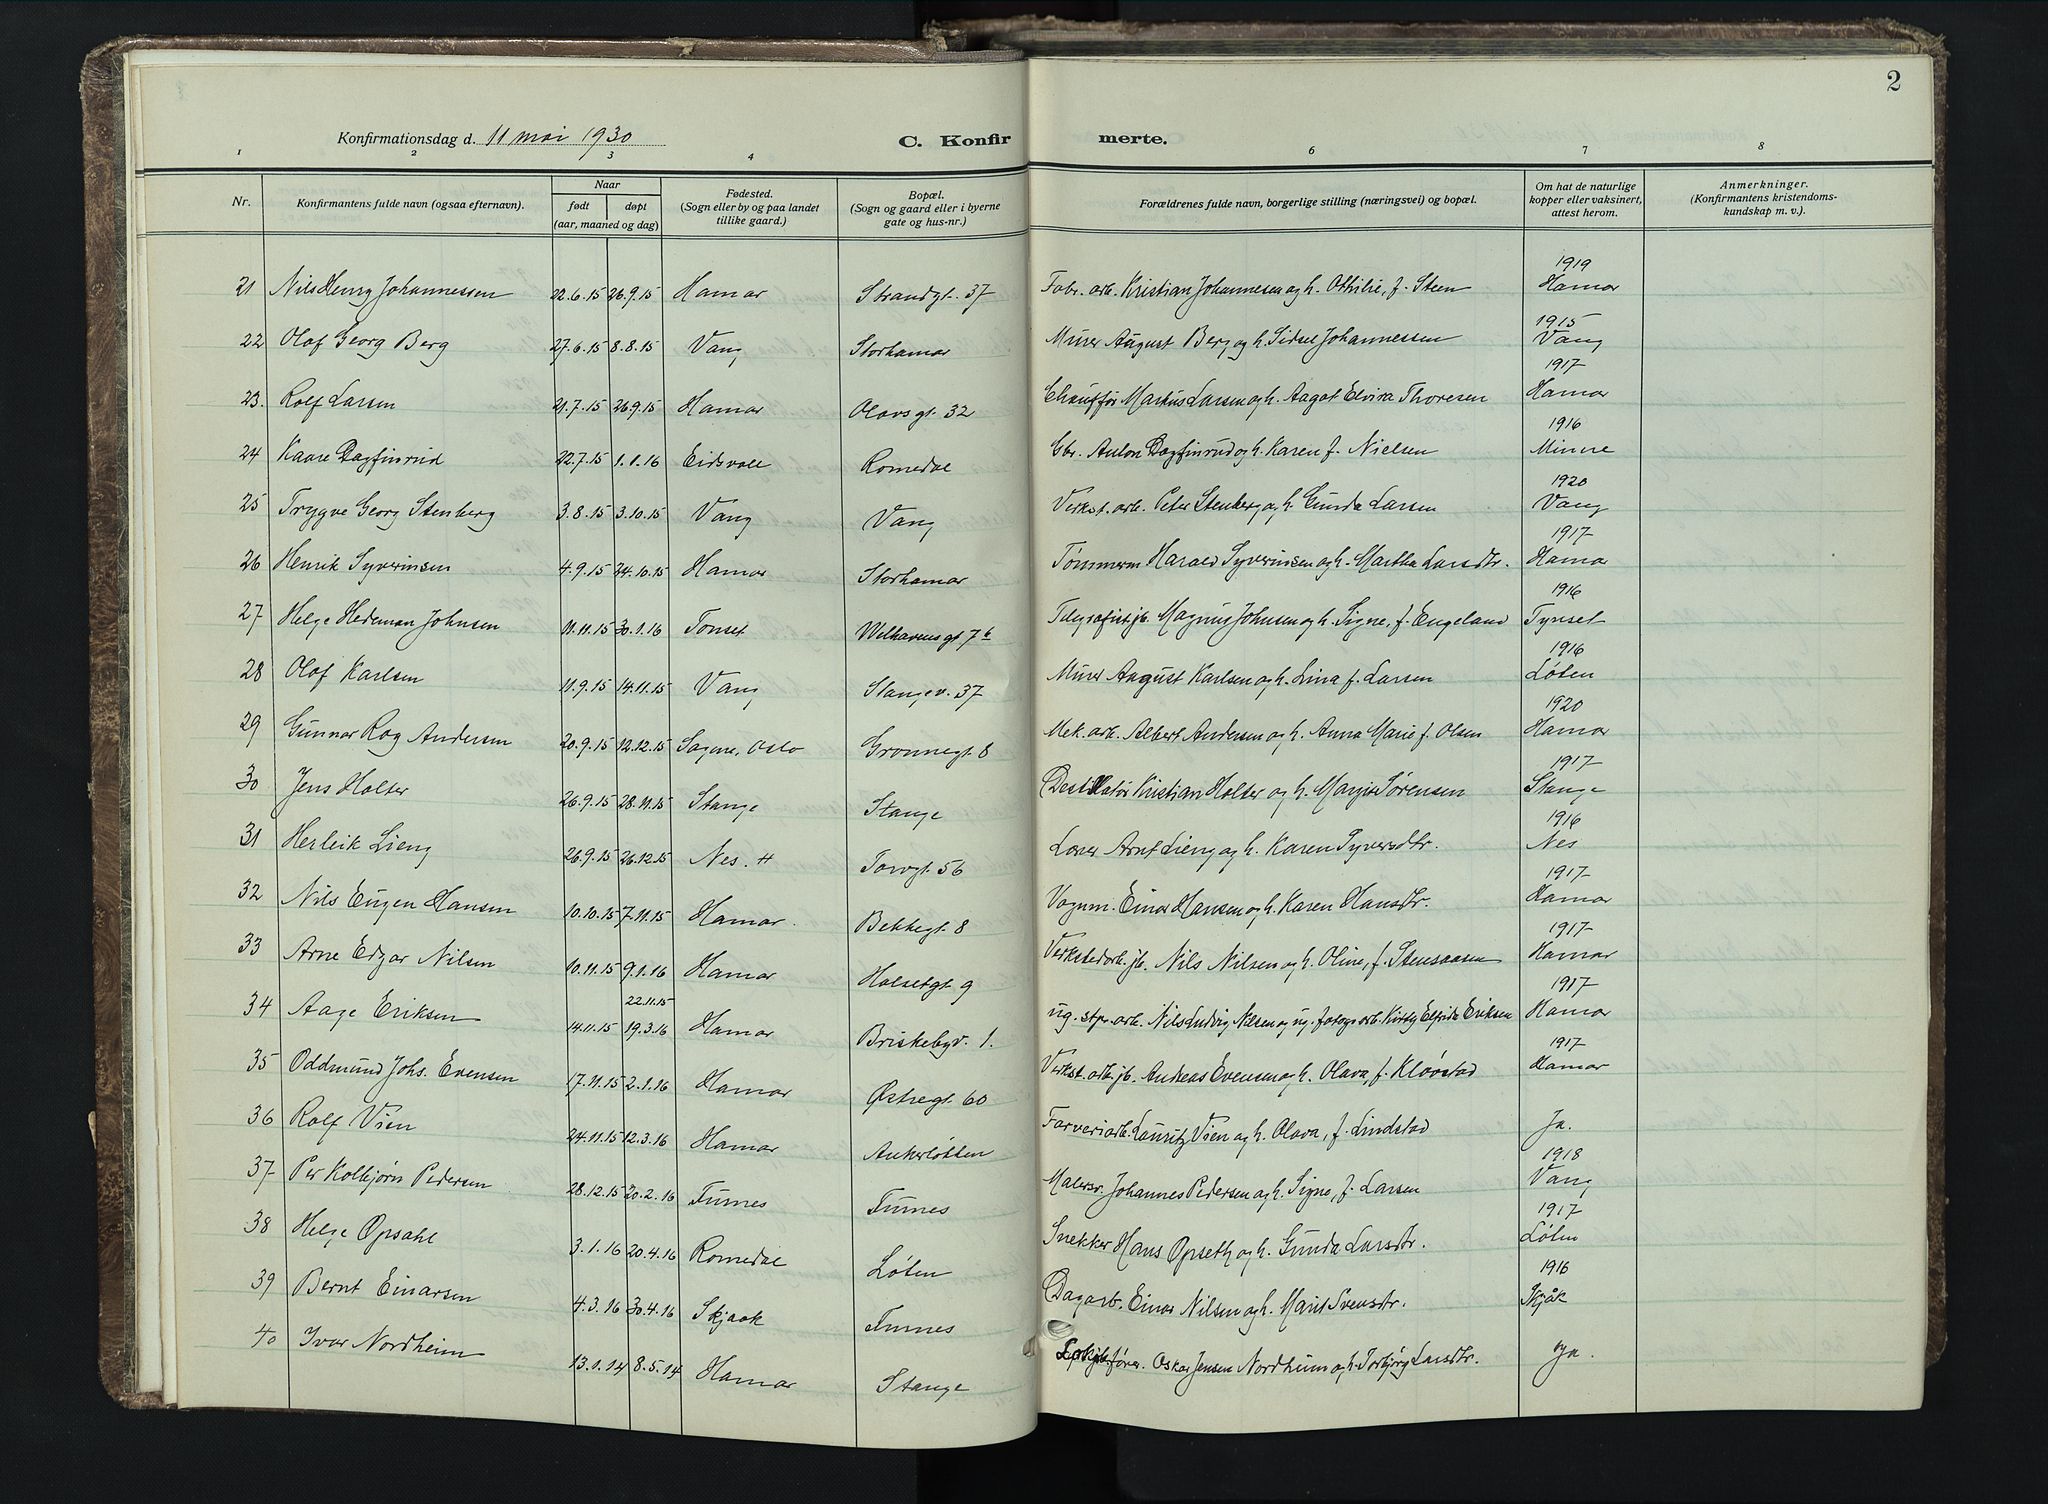 2
Konfirmationsdag d. 11 mai 1930
C. Konfirmerte.
1 2 3 4 6 7 8
Nr. Konfirmantens fulde navn (ogsaa efternavn). Naar født døpt (aar, maaned og dag) Fødested. (Sogn eller by og paa landet tillike gaard.) Bopæl. (Sogn og gaard eller i byerne gate og hus-nr.) Forældrenes fulde navn, borgerlige stilling (næringsvei) og bopæl. Om hat de naturlige kopper eller vaksinert, attest herom. Anmerkninger. (Konfirmantens kristendomskundskap m. v.).
21 Nils Henry Johannessen 22.6.15 26.9.15 Hamar Strandgt. 37 Fabr. arb. Kristian Johannesen og h. Othilie, f. Steen 1919 Hamar
22 Olaf Georg Berg 27.6.15 8.8.15 Vang Storhamar Murer August Berg og h. Sidsel Johannessen 1915 Vang
23. Rolf Larsen 21.7.15 26.9.15 Hamar Olavsgt. 32 Chauffør Markus Larsen og h. Aagot Elvira Thoresen 1917 Hamar
24 Kaare Dagfinrud 22.7.15 1.1.16 Eidsvoll Romedal Gbr. Anton Dagfinrud og h. Karen f. Nielsen 1916 Minne
25 Trygve Georg Stenberg 3.8.15 3.10.15 Vang Vang Verkst. arb. Peter Stenberg og h. Gunda Larsen 1920 Vang
26 Henrik Syverinsen 4.9.15 24.10.15 Hamar Storhamar Tømmerm Harald Syverinsen og h. Martha Larsdtr. 1917 Hamar
27 Helge Hedeman Johnsen 11.11.15 30.1.16 Tønset Welhavensgt 7b Telegrafist jb. Magnus Johnsen og h. Signe, f. Engeland 1916 Tynset
28 Olaf Karlsen 11.9.15 14.11.15 Vang Stangev. 37 Murer August Karlsen og h. Lina f. Larsen 1916 Løten
29 Gunnar Roy Andersen 20.9.15 12.12.15 Sagene, Oslo Grønnegt 8 Mek. arb. Albert Andersen og h. Anna Marie f. Olsen 1920 Hamar
30 Jens Holter 26.9.15 28.11.15 Stange Stange Destillatør Kristian Holter og h. Marie Sørensen 1917 Stange
31 Herleik Lieng 26.9.15 26.12.15 Nes. H Torvgt. 56 Lærer Arnt Lieng og h. Karen Syversdtr. 1916 Nes
32 Nils Eugen Hansen 10.10.15 7.11.15 Hamar. Bekkegt. 8 Vognm. Einar Hansen og h. Karen Hansdtr. 1917 Hamar
33 Arne Edgar Nilsen 10.11.15 9.1.16 Hamar Holsetgt. 9 Verkstedarb. jb. Nils Nilsen og h. Oline, f. Stensaasen 1917 Hamar
34 Aage Eriksen 14.11.15 22.11.15 19.3.16 Hamar Briskebyv. 1. ug. stpr. arb. Nils Ludvig Nilsen og ug. fotogr. arb. Kirsty Elfrida Eriksen 1917 Hamar
35 Oddmund Johs. Evensen 17.11.15 2.1.16 Hamar Østregt 60 Verkst. arb. jb. Andreas Evensen og h. Olava, f. Kløvstad 1917 Hamar
36 Rolf Vien 24.11.15 12.3.16 Hamar Ankerløkken Farveriarb. Lauritz Vien og h. Olava, f. Lindstad Ja.
37 Per Kolbjørn Pedersen 28.12.15 20.2.16 Furnes Furnes Malersv. Johannes Pedersen og h. Signe, f. Larsen 1918 Vang
38 Helge Opsahl 3.1.16 20.4.16 Romedal Løten Snekker Hans Opseth og h. Gunda Larsdtr. 1917 Løten
39 Bernt Einarsen 4.3.16 30.4.16 Skjaak Furnes Dagarb. Einar Nilsen og h. Marit Svensdtr. 1916 Skjåk
40 Ivar Nordheim 13.1.14 8.5.14 Hamar Stange fører. Oskar Jensen Nordheim og h. Torbjørg Larsdtr. Ja.